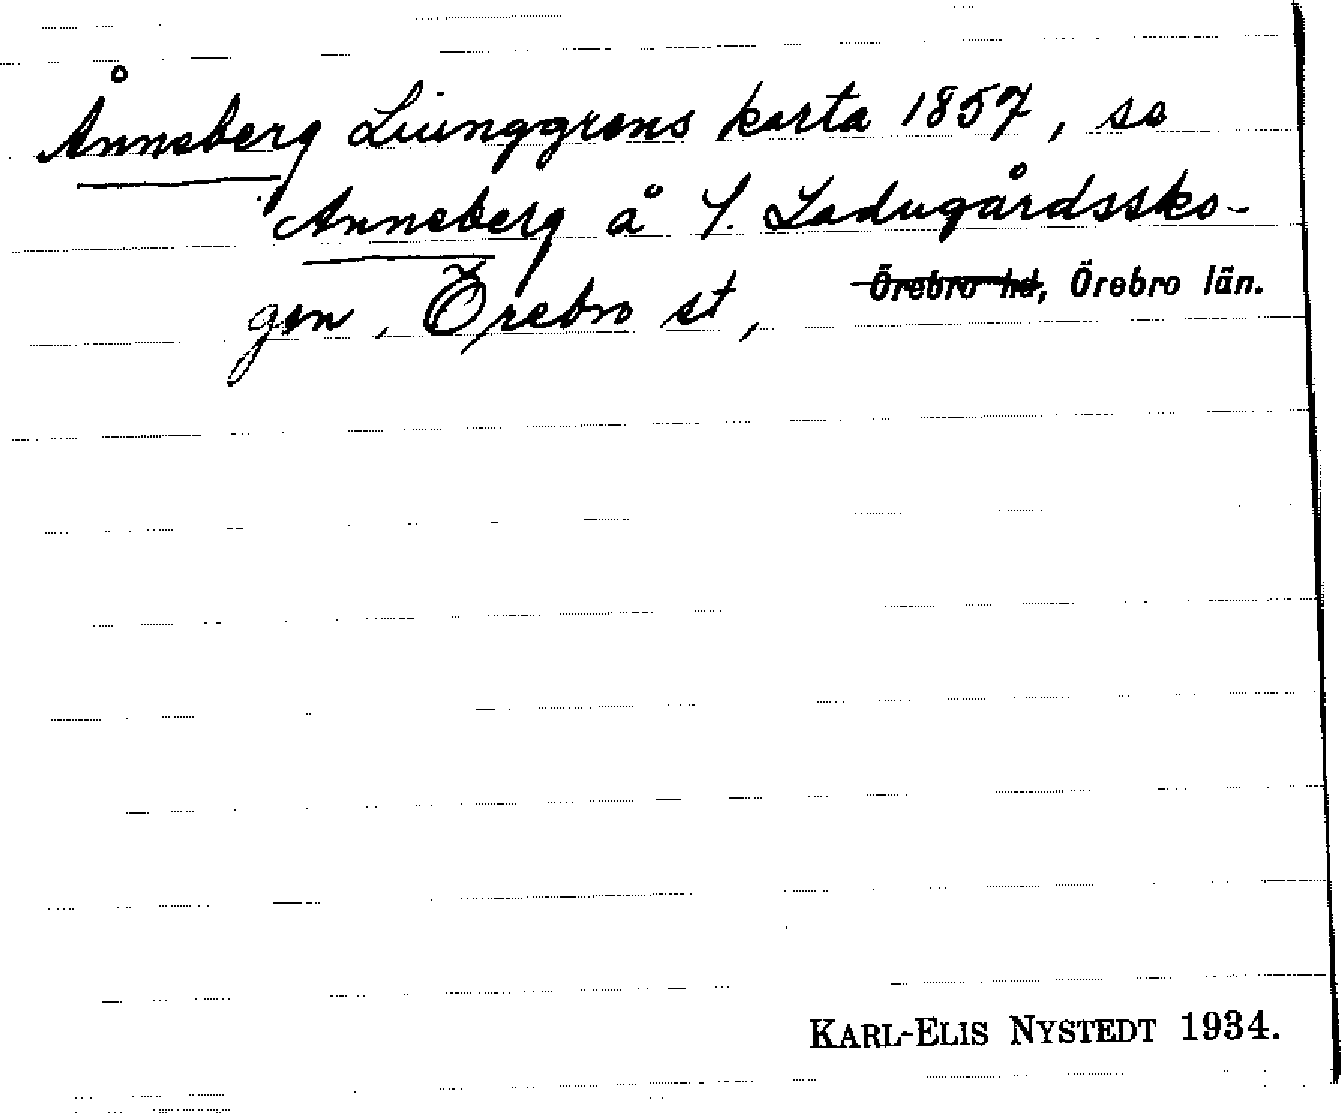 Ånneberg Liunggrens karta 1857, se
Anneberg å S. Ladugårdssko-
gen, Örebro st, Örebro hd, Örebro län.
KARL-ELIS NYSTEDT 1934.